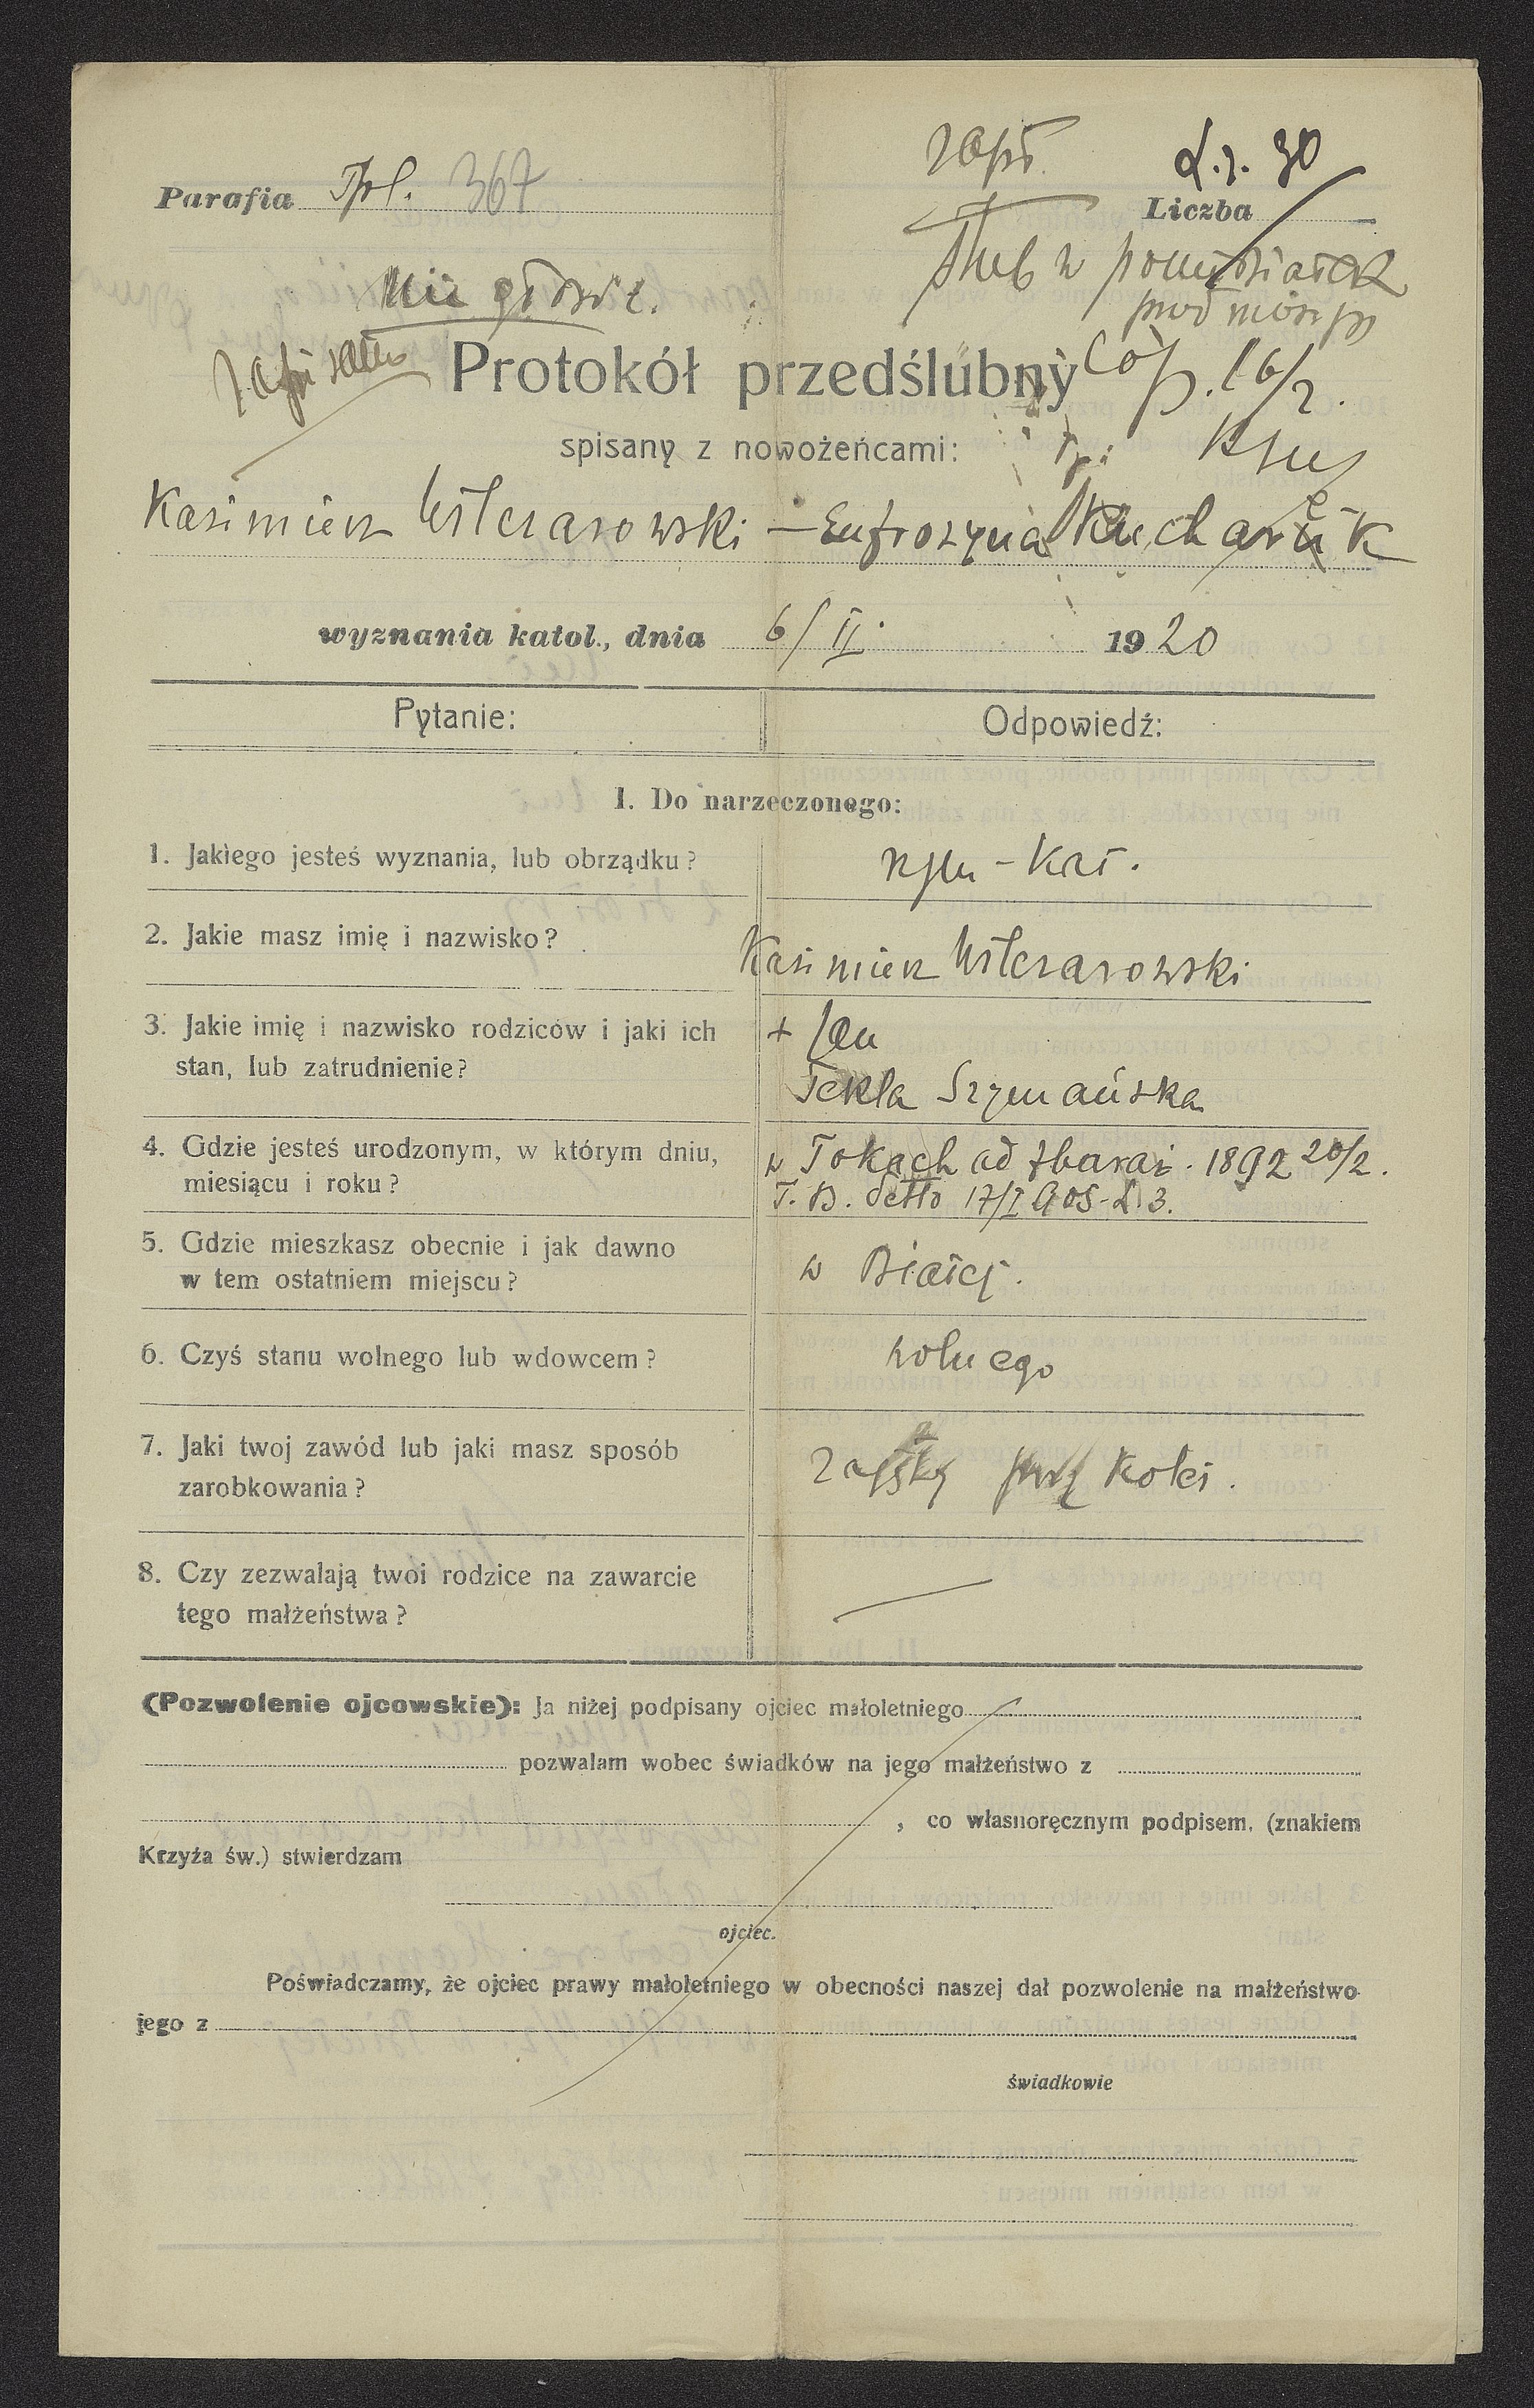 zapis. L. s. 30
Parafia Tpl. 367 Liczba
Ślub w poniedziałek
Nie głosić. przed mszą
zapisano
Protokół przedślubny 16/2.
spisany z nowożeńcami:
Kazimierz Wilczarowski — Eufrozyna Kucharek
wyznania katol., dnia 6/II. 1920
Pytanie: Odpowiedź:
1. Do narzeczonego:
1. Jakiego jesteś wyznania, lub obrządku? rzym-kat.
2. Jakie masz imię i nazwisko?
Kazimierz Wilczarowski
3. Jakie imię i nazwisko rodziców i jaki ich + Jan
stan, lub zatrudnienie? Tekla Szymańska
4. Gdzie jesteś urodzonym, w którym dniu, w Tokach ad Zbaraż. 1892 20/2.
miesiącu i roku? T. B. detto 17/I 905 - L 3.
5. Gdzie mieszkasz obecnie i jak dawno
w tem ostatniem miejscu? w Białej.
6. Czyś stanu wolnego lub wdowcem? wolnego
7. Jaki twoj zawód lub jaki masz sposób
zarobkowania? przy kolei.
8. Czy zezwalają twoi rodzice na zawarcie
tego małżeństwa? —
(Pozwolenie ojcowskie): Ja niżej podpisany ojciec małoletniego
pozwalam wobec świadków na jego małżeństwo z
, co własnoręcznym podpisem, (znakiem
Krzyża św.) stwierdzam
ojciec.
Poświadczamy, że ojciec prawy małoletniego w obecności naszej dał pozwolenie na małżeństwo
jego z
świadkowie